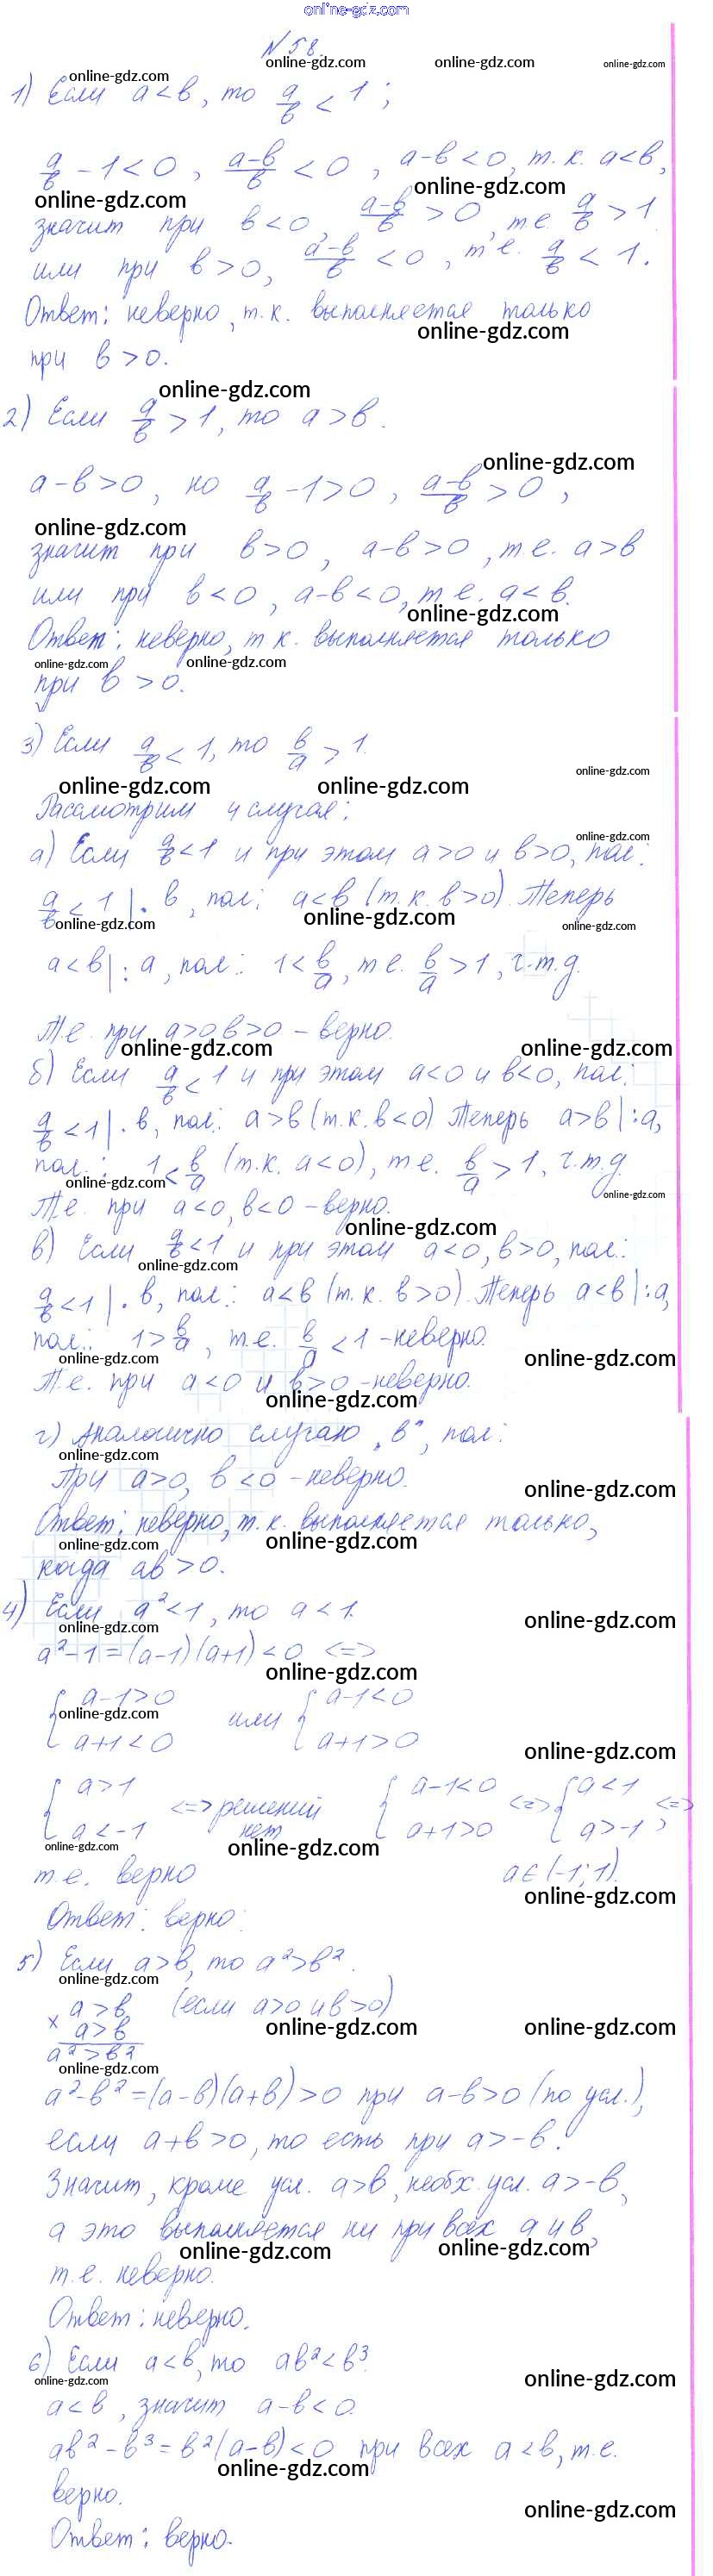 online-gdz.com
N 58.
1) Если a<b, то a/b < 1;
a/b - 1 < 0, (a-b)/b < 0, a-b<0, т.к. a<b,
значит при b<0, (a-b)/b > 0, т.е. a/b > 1
или при b>0, (a-b)/b < 0, т.е. a/b < 1.
Ответ: неверно, т.к. выполняется только
при b>0.
2) Если a/b > 1, то a>b.
a-b>0, но a/b - 1>0, (a-b)/b > 0,
значит при b>0, a-b>0, т.е. a>b
или при b<0, a-b<0, т.е. a<b.
Ответ: неверно, т к. выполняется только
при b>0.
3) Если a/b < 1, то b/a > 1.
Рассмотрим 4 случая:
а) Если a/b <1 и при этом a>0 и b>0, пол:
a/b < 1 |· b, пол: a<b (т.к. b>0). Теперь
a<b |: a, пол: 1< b/a, т.е. b/a >1, ч.т.д.
Т.е. при a>0 b>0 - верно.
б) Если a/b < 1 и при этом a<0 и b<0, пол:
a/b <1 |· b, пол: a>b (т.к. b<0) Теперь a>b |: a,
пол: 1< b/a (т.к. a<0), т.е. b/a >1, ч.т.д.
Т.е. при a<0, b<0 - верно.
в) Если a/b <1 и при этом a<0, b>0, пол:
a/b <1 |· b, пол: a<b (т.к. b>0). Теперь a<b |: a,
пол: 1> b/a, т.е. b/a <1 - неверно.
Т.е. при a<0 и b>0 - неверно.
г) Аналогично случаю „в", пол:
При a>0, b<0 - неверно.
Ответ: неверно, т.к. выполняется только,
когда ab>0.
4) Если a²<1, то a<1.
a²-1=(a-1)(a+1)<0 <=>
{ a-1>0 или { a-1<0
a+1<0 a+1>0
{ a>1 <=> решений { a-1<0 <=> { a<1 <=>
a<-1 нет a+1>0 a>-1,
т.е. верно a∈(-1;1).
Ответ: верно.
5) Если a>b, то a²>b².
× a>b (если a>0 и b>0)
a>b
a²>b²
a²-b²=(a-b)(a+b)>0 при a-b>0 (по усл.),
если a+b>0, то есть при a>-b.
Значит, кроме усл. a>b, необх. усл. a>-b,
а это выполняется ни при всех a и b,
т.е. неверно.
Ответ: неверно.
6) Если a<b, то ab²<b³.
a<b, значит a-b<0.
ab²-b³=b²(a-b)<0 при всех a<b, т.е.
верно.
Ответ: верно.